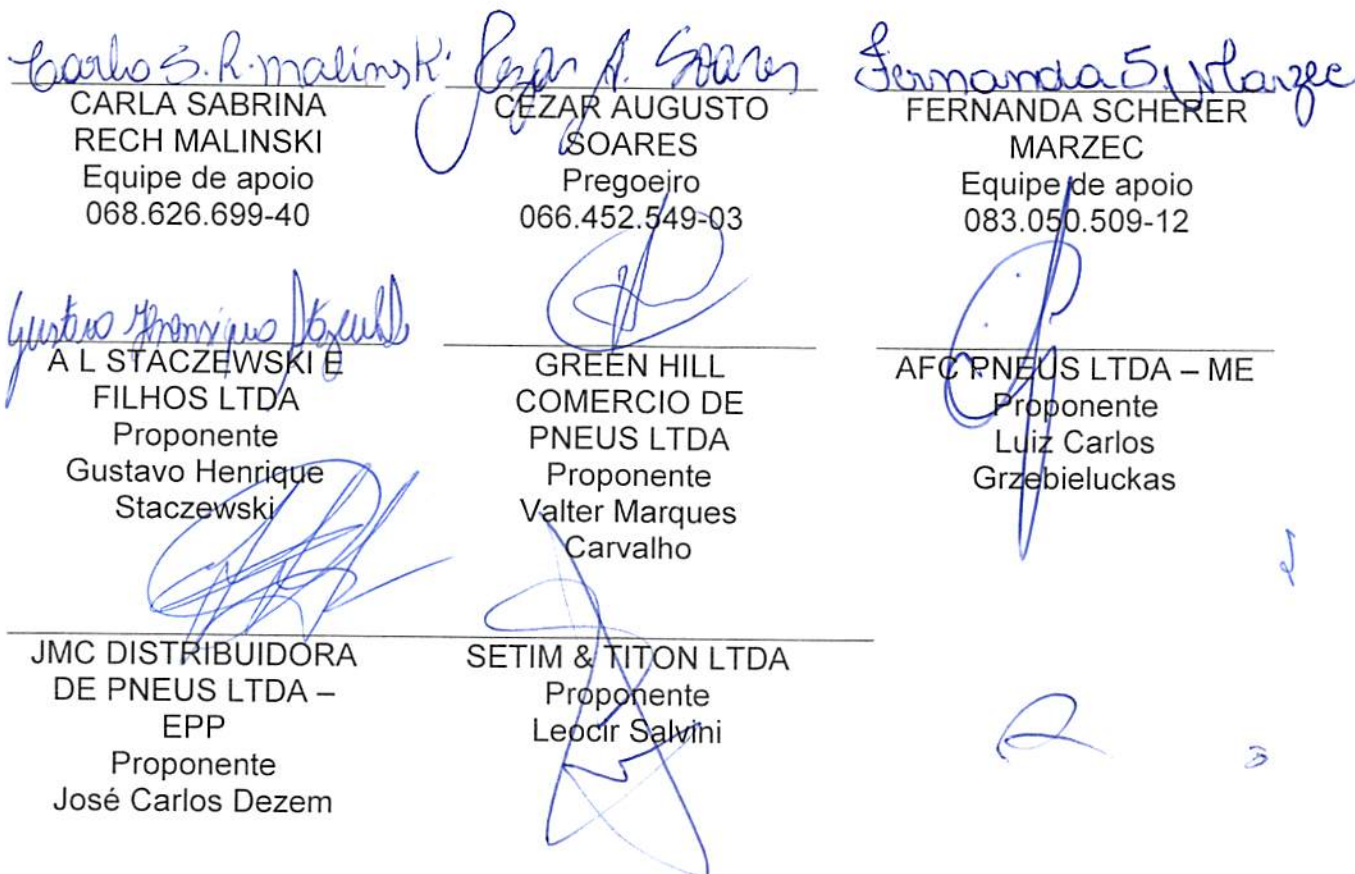 Carla S. R. Malinski
CARLA SABRINA
RECH MALINSKI
Equipe de apoio
068.626.699-40
Cezar A. Soares
CEZAR AUGUSTO
SOARES
Pregoeiro
066.452.549-03
Fernanda S. Marzec
FERNANDA SCHERER
MARZEC
Equipe de apoio
083.050.509-12
Gustavo Henrique
A L STACZEWSKI E
FILHOS LTDA
Proponente
Gustavo Henrique
Staczewski
GREEN HILL
COMERCIO DE
PNEUS LTDA
Proponente
Valter Marques
Carvalho
AFC PNEUS LTDA – ME
Proponente
Luiz Carlos
Grzebieluckas
JMC DISTRIBUIDORA
DE PNEUS LTDA –
EPP
Proponente
José Carlos Dezem
SETIM & TITON LTDA
Proponente
Leocir Salvini